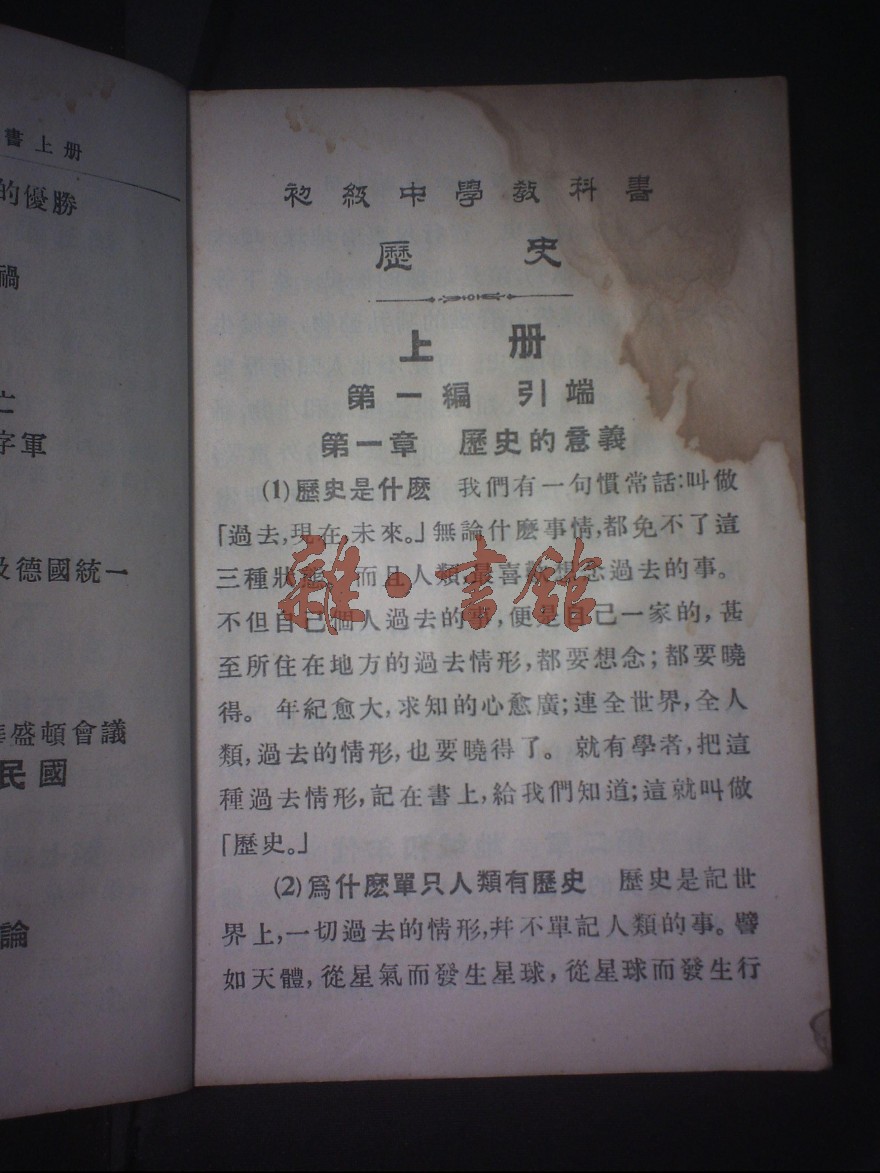 書上册
的優勝
禍
亡
字軍
及德國統一
華盛頓會議
民國
論
初級中學教科書
歷史
上册
第一編 引端
第一章 歷史的意義
(1)歷史是什麽 我們有一句慣常話:叫做
「過去,現在,未來。」無論什麽事情,都免不了這
三種狀態。而且人類,最喜歡想念過去的事。
不但自己個人過去的事,便是自己一家的,甚
至所住在地方的過去情形,都要想念;都要曉
得。年紀愈大,求知的心愈廣;連全世界,全人
類,過去的情形,也要曉得了。就有學者,把這
種過去情形,記在書上,給我們知道;這就叫做
「歷史。」
(2)爲什麽單只人類有歷史 歷史是記世
界上,一切過去的情形,幷不單記人類的事。譬
如天體,從星氣而發生星球,從星球而發生行
雜·書館